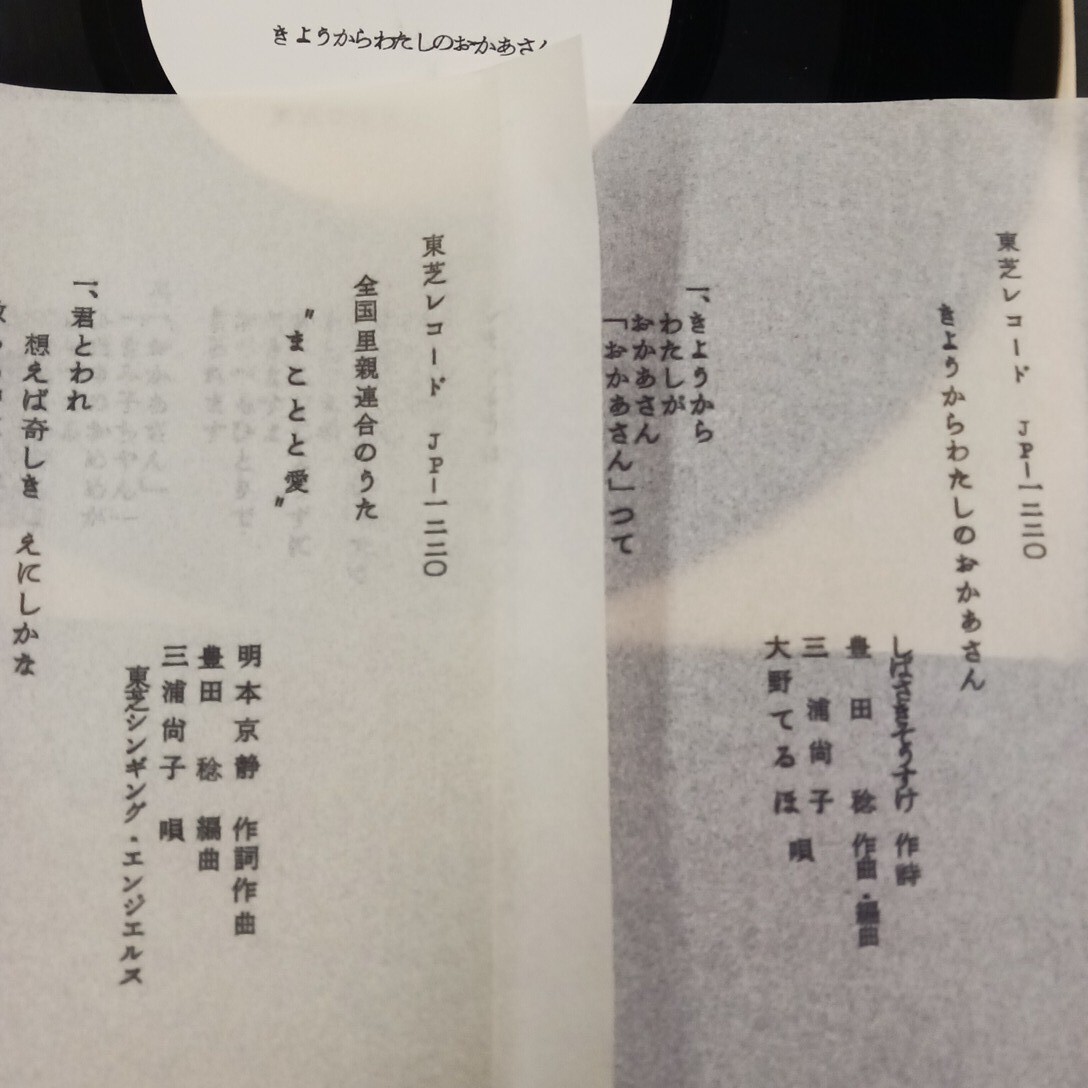 きようからわたしのおかあさ
東芝レコード　JP―一二二〇
きようからわたしのおかあさん
しばさきそうすけ　作詩
豊田　稔　作曲・編曲
三浦尚子
大野てるほ　唄
一、きようから
わたしが
おかあさん
「おかあさん」つて
東芝レコード　JP―一二二〇
全国里親連合のうた
"まことと愛"
明本京静　作詞作曲
豊田　稔　編曲
三浦尚子　唄
東芝シンギング・エンジエルス
一、君とわれ
想えば奇しき　えにしかな